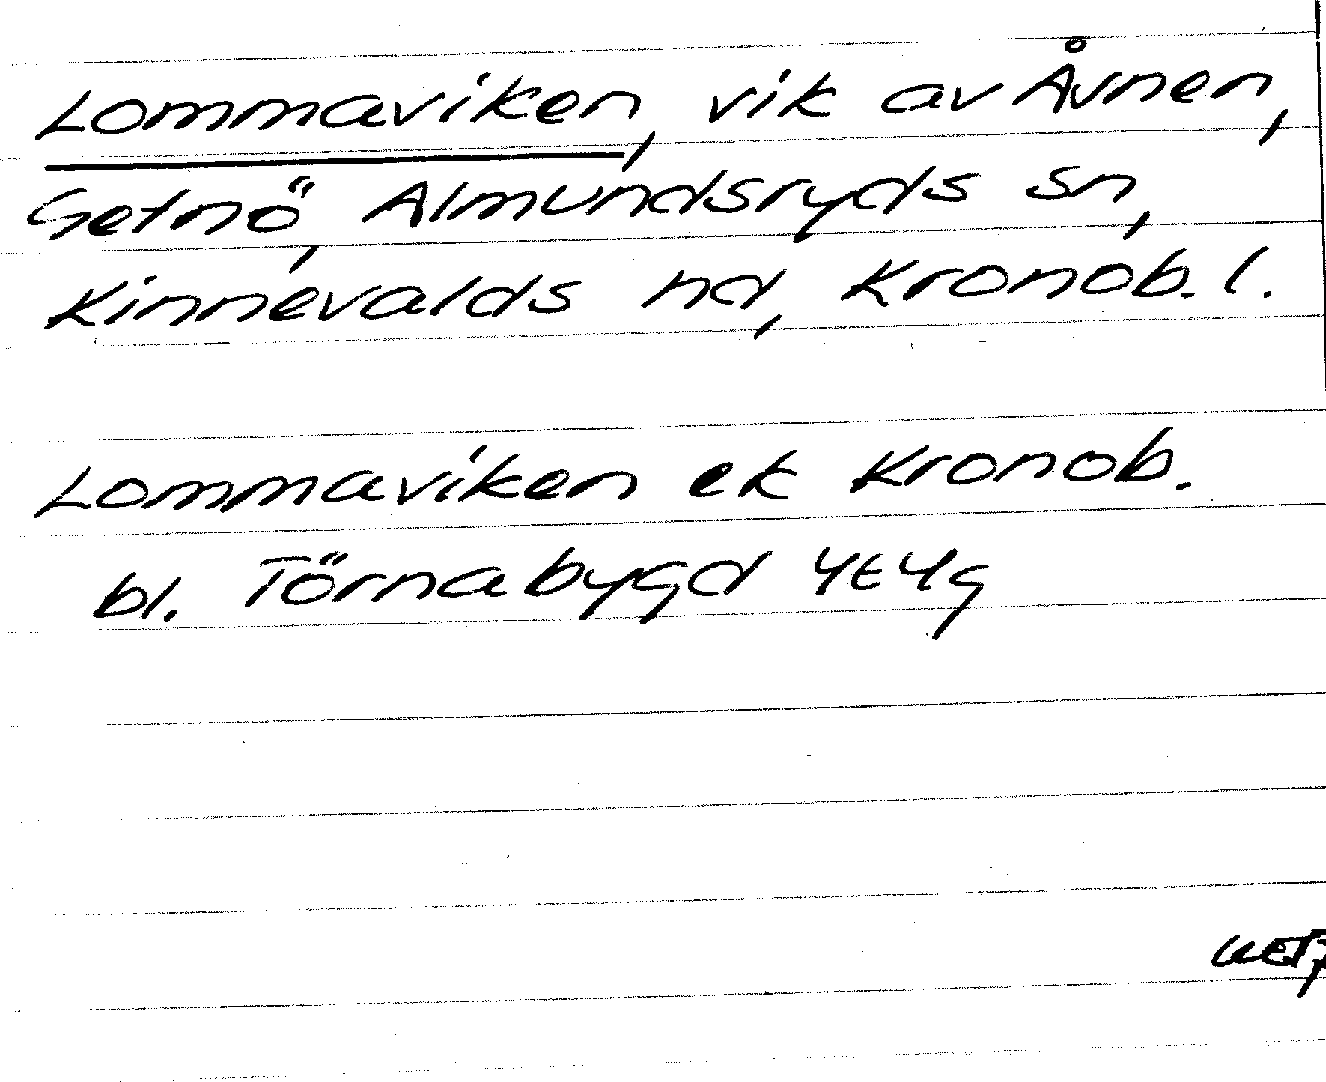 Lommaviken, vik av Åsnen,
Getnö, Almundsryds sn,
Kinnevalds hd, Kronob. l.
Lommaviken ek Kronob.
bl. Törnabygd 4E4g